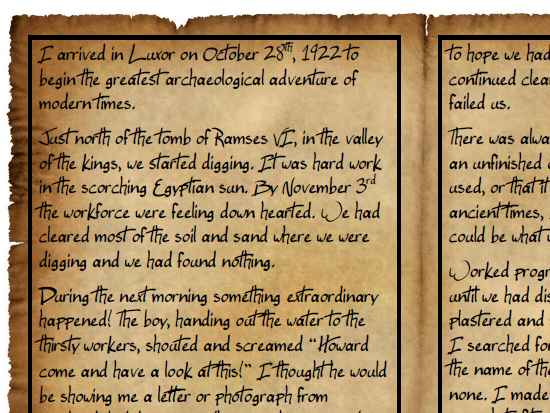 I arrived in Luxor on October 28th, 1922 to
begin the greatest archaeological adventure of
modern times.
Just north of the tomb of Ramses VI, in the valley
of the kings, we started digging. It was hard work
in the scorching Egyptian sun. By November 3rd
the workforce were feeling down hearted. We had
cleared most of the soil and sand where we were
digging and we had found nothing.
During the next morning something extraordinary
happened! The boy, handing out the water to the
thirsty workers, shouted and screamed “Howard
come and have a look at this!” I thought he would
be showing me a letter or photograph from
to hope we had
continued clea
failed us.
There was alwa
an unfinished
used, or that it
ancient times,
could be what
Worked progr
until we had dis
plastered and
I searched fo
the name of the
none. I made